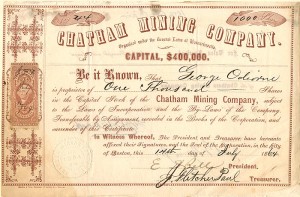 214
1000
CHATHAM MINING COMPANY.
Organized under the General Laws of Massachusetts.
CAPITAL, $400,000.
Be it Known, That George Osborne
is proprietor of One Thousand Shares
in the Capital Stock of the Chatham Mining Company, subject
to the Laws of Incorporation and the By-Laws of the Company
Transferable by Assignment, recorded in the Books of the Corporation, and
surrender of this Certificate.
In Witness Whereof, The President and Treasurer have hereunto
affixed their Signatures, and the Seal of the Corporation, in the City
of Boston, this 14th day of July 1864
President,
Treasurer.